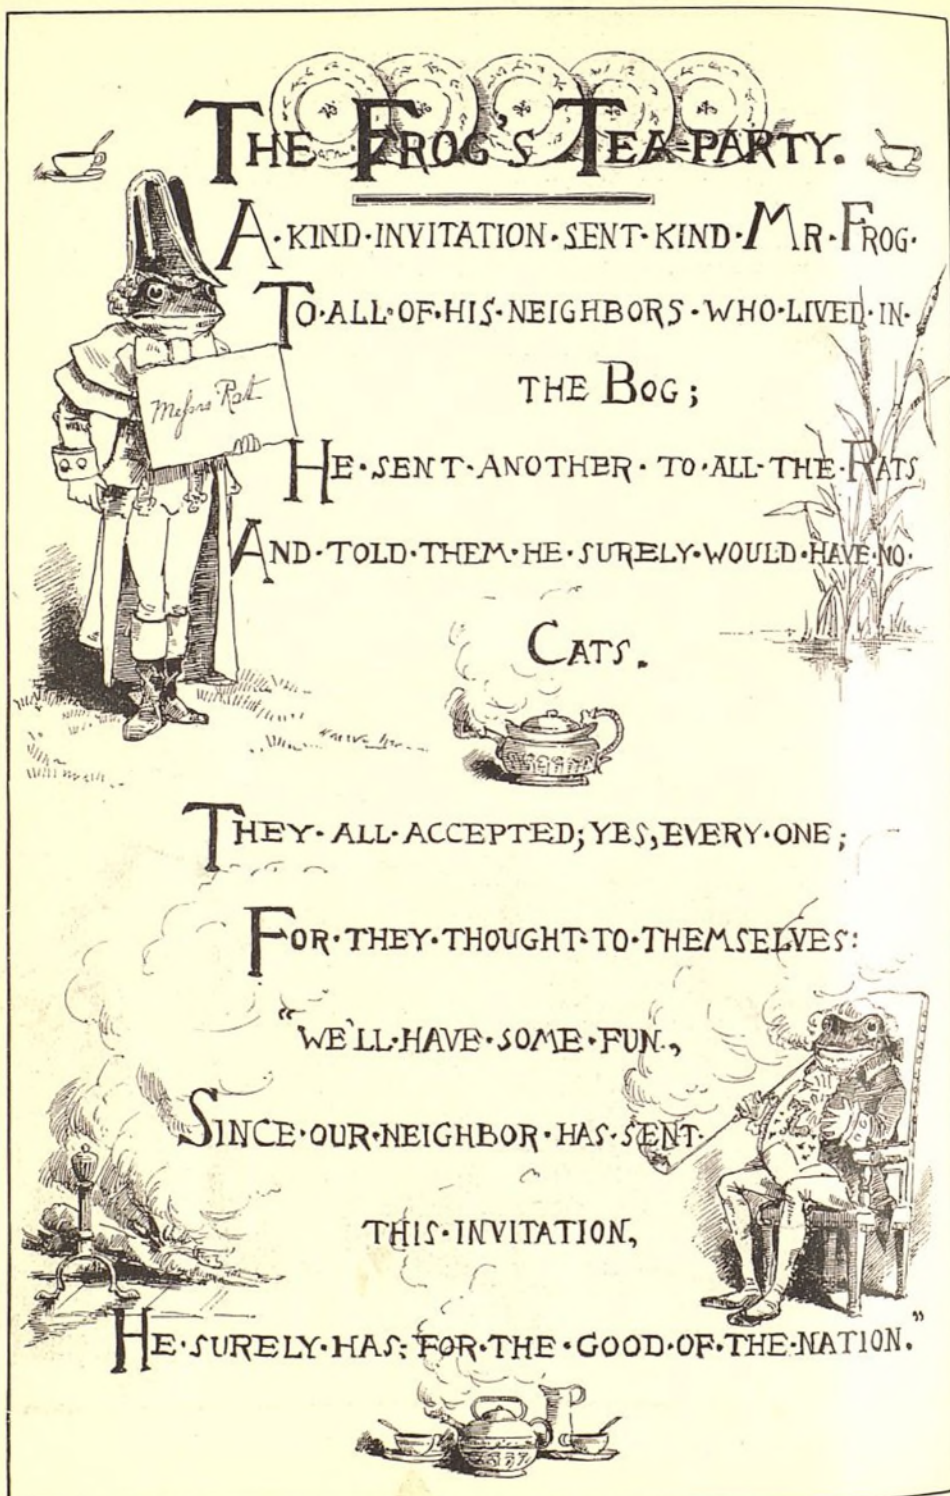 THE FROG'S TEA-PARTY.
A·KIND·INVITATION·SENT·KIND·MR·FROG·
Messrs Ratt
TO·ALL·OF·HIS·NEIGHBORS·WHO·LIVED·IN·
THE BOG;
HE·SENT·ANOTHER·TO·ALL·THE·RATS
AND·TOLD·THEM·HE·SURELY·WOULD·HAVE·NO·
CATS.
THEY·ALL·ACCEPTED; YES, EVERY·ONE;
FOR·THEY·THOUGHT·TO·THEMSELVES:
"WE'LL·HAVE·SOME·FUN.,
SINCE·OUR·NEIGHBOR·HAS·SENT·
THIS·INVITATION,
HE·SURELY·HAS: FOR·THE·GOOD·OF·THE·NATION."